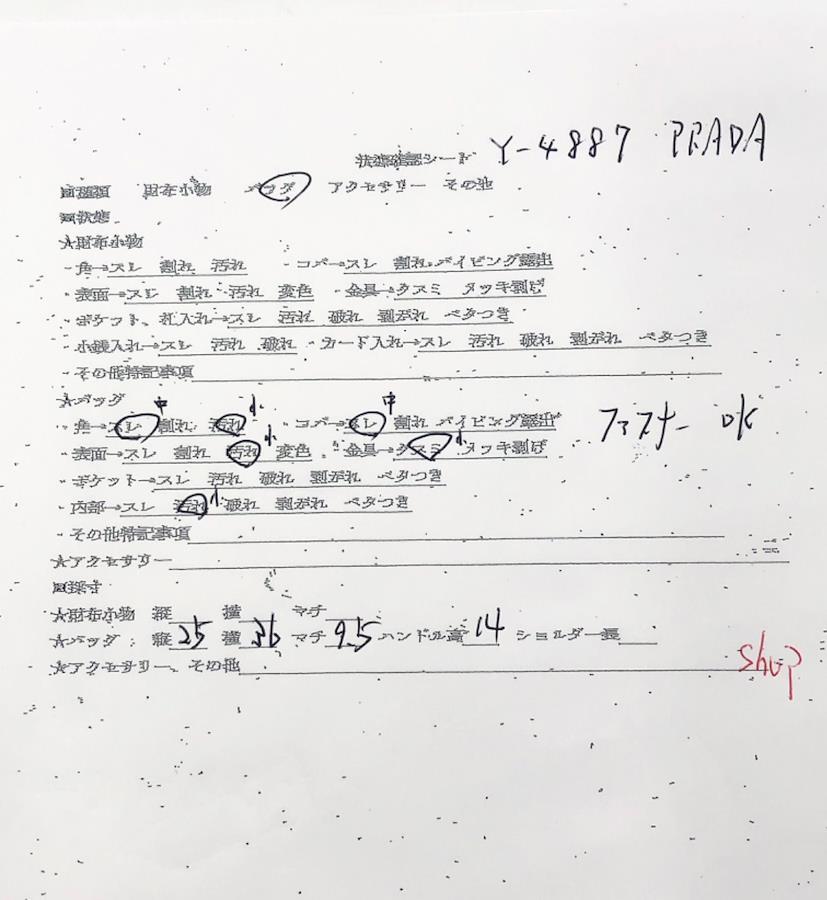 状態確認シート Y-4887 PRADA
□種類 財布小物 バッグ アクセサリー その他
□状態
★財布小物
・角→スレ 割れ 汚れ ・コバ→スレ 割れ パイピング露出
・表面→スレ 割れ 汚れ 変色 ・金具→クスミ メッキ剥げ
・ポケット、札入れ→スレ 汚れ 破れ 剥がれ ベタつき
・小銭入れ→スレ 汚れ 破れ ・カード入れ→スレ 汚れ 破れ 剥がれ ベタつき
・その他特記事項
★バッグ 中 小 中
・角→スレ 割れ 汚れ ・コバ→スレ 割れ パイピング露出 ファスナー OK
小 小
・表面→スレ 割れ 汚れ 変色 ・金具→クスミ メッキ剥げ
・ポケット→スレ 汚れ 破れ 剥がれ ベタつき
・内部→スレ 汚れ 小 破れ 剥がれ ベタつき
・その他特記事項
★アクセサリー
□採寸
★財布小物 縦 横 マチ
★バッグ : 縦 25 横 36 マチ 9.5 ハンドル高 14 ショルダー長
★アクセサリー、その他
shop